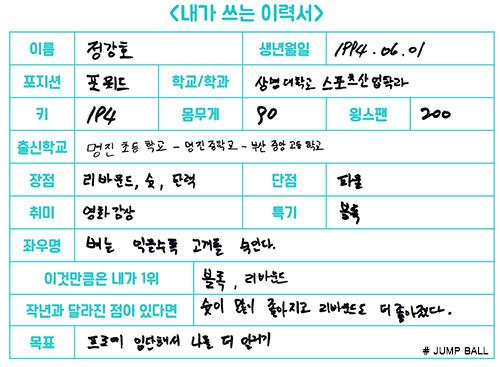 <내가 쓰는 이력서>
이름 정강호 생년월일 1994.06.01
포지션 포워드 학교/학과 상명대학교 스포츠산업학과
키 194 몸무게 90 윙스팬 200
출신학교 명진초등학교 - 명진중학교 - 부산 중앙고등학교
장점 리바운드, 슛, 탄력 단점 파울
취미 영화감상 특기 블록
좌우명 벼는 익을수록 고개를 숙인다.
이것만큼은 내가 1위 블록, 리바운드
작년과 달라진 점이 있다면 슛이 많이 좋아지고 리바운드도 더 좋아졌다.
목표 프로에 입단해서 나를 더 알리기
# JUMP BALL